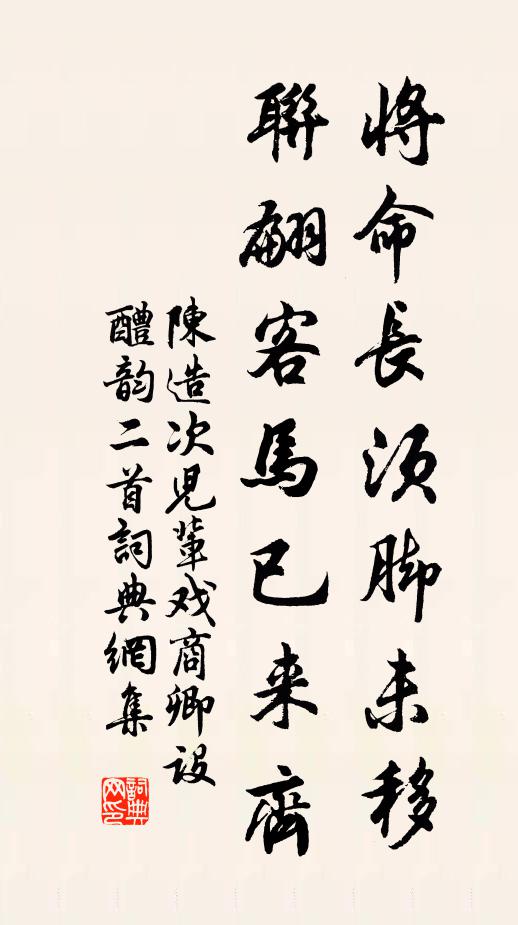 將命長須脚未移
聯翩客馬已来齊
陳造次児輩戏商卿设
醴韵二首詞典網集
詞典网印